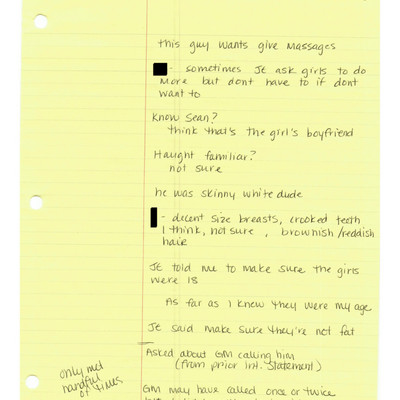 this guy wants give massages
- sometimes JE ask girls to do
more but dont have to if dont
want to
Know Sean?
think that's the girl's boyfriend
Haught familiar?
not sure
he was skinny white dude
- decent size breasts, crooked teeth
I think, not sure, brownish/reddish
hair
JE told me to make sure the girls
were 18
As far as I knew they were my age
JE said make sure they're not fat
Asked about GM calling him
(from prior int. statement)
only met
handful
of times
GM may have called once or twice